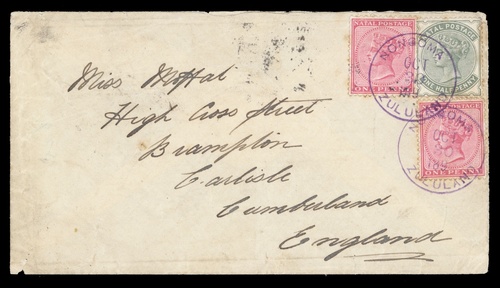 NATAL POSTAGE
ONE PENNY
NATAL POSTAGE
ZULULAND
HALFPENNY
NONGOMA
OCT
ZULULAND
NATAL POSTAGE
ONE PENNY
NONGOMA
OCT
ZULULAND
Miss Moffat
High Cross Street
Brampton
Carlisle
Cumberland
England